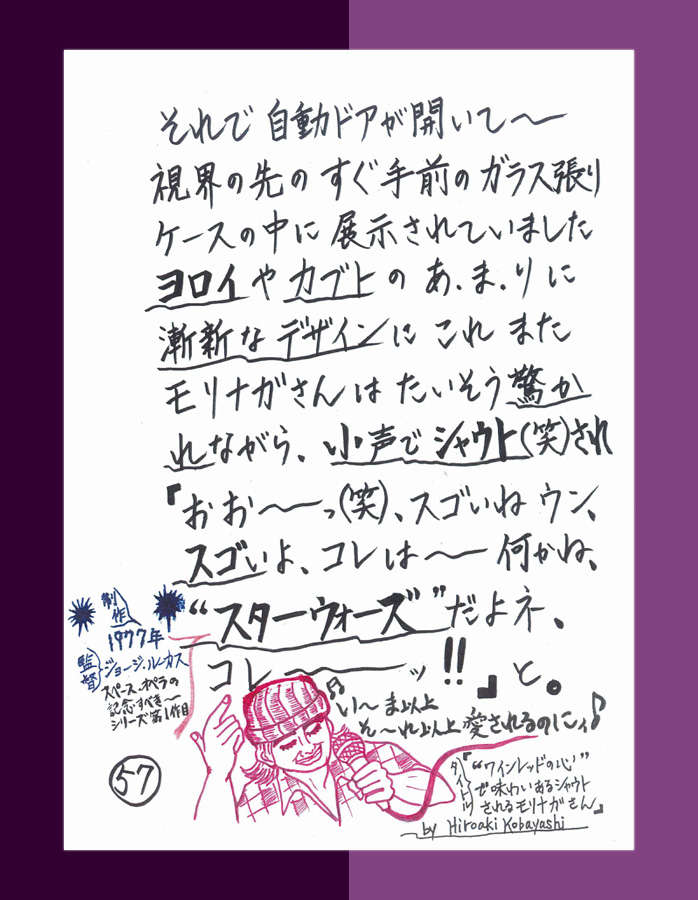 それで自動ドアが開いて〜
視界の先のすぐ手前のガラス張り
ケースの中に展示されていました
ヨロイやカブトのあ.ま.りに
漸新なデザインにこれまた
モリナガさんはたいそう驚か
れながら、小声でシャウト(笑)され
『おお〜〜っ(笑)、スゴいねウン、
スゴいよ、コレは〜〜何かね、
“スターウォーズ”だよネ、
コレ〜〜〜ッ!!』と。
制作
1977年
監督 ジョージ・ルーカス
スペース・オペラの
記念すべき〜
シリーズ第1作目
♫い〜ま以上
そ〜れ以上愛されるのにィ♪
57
タイトル
『“ワインレッドの心”
で味わいあるシャウト
されるモリナガさん』
by Hiroaki Kobayashi